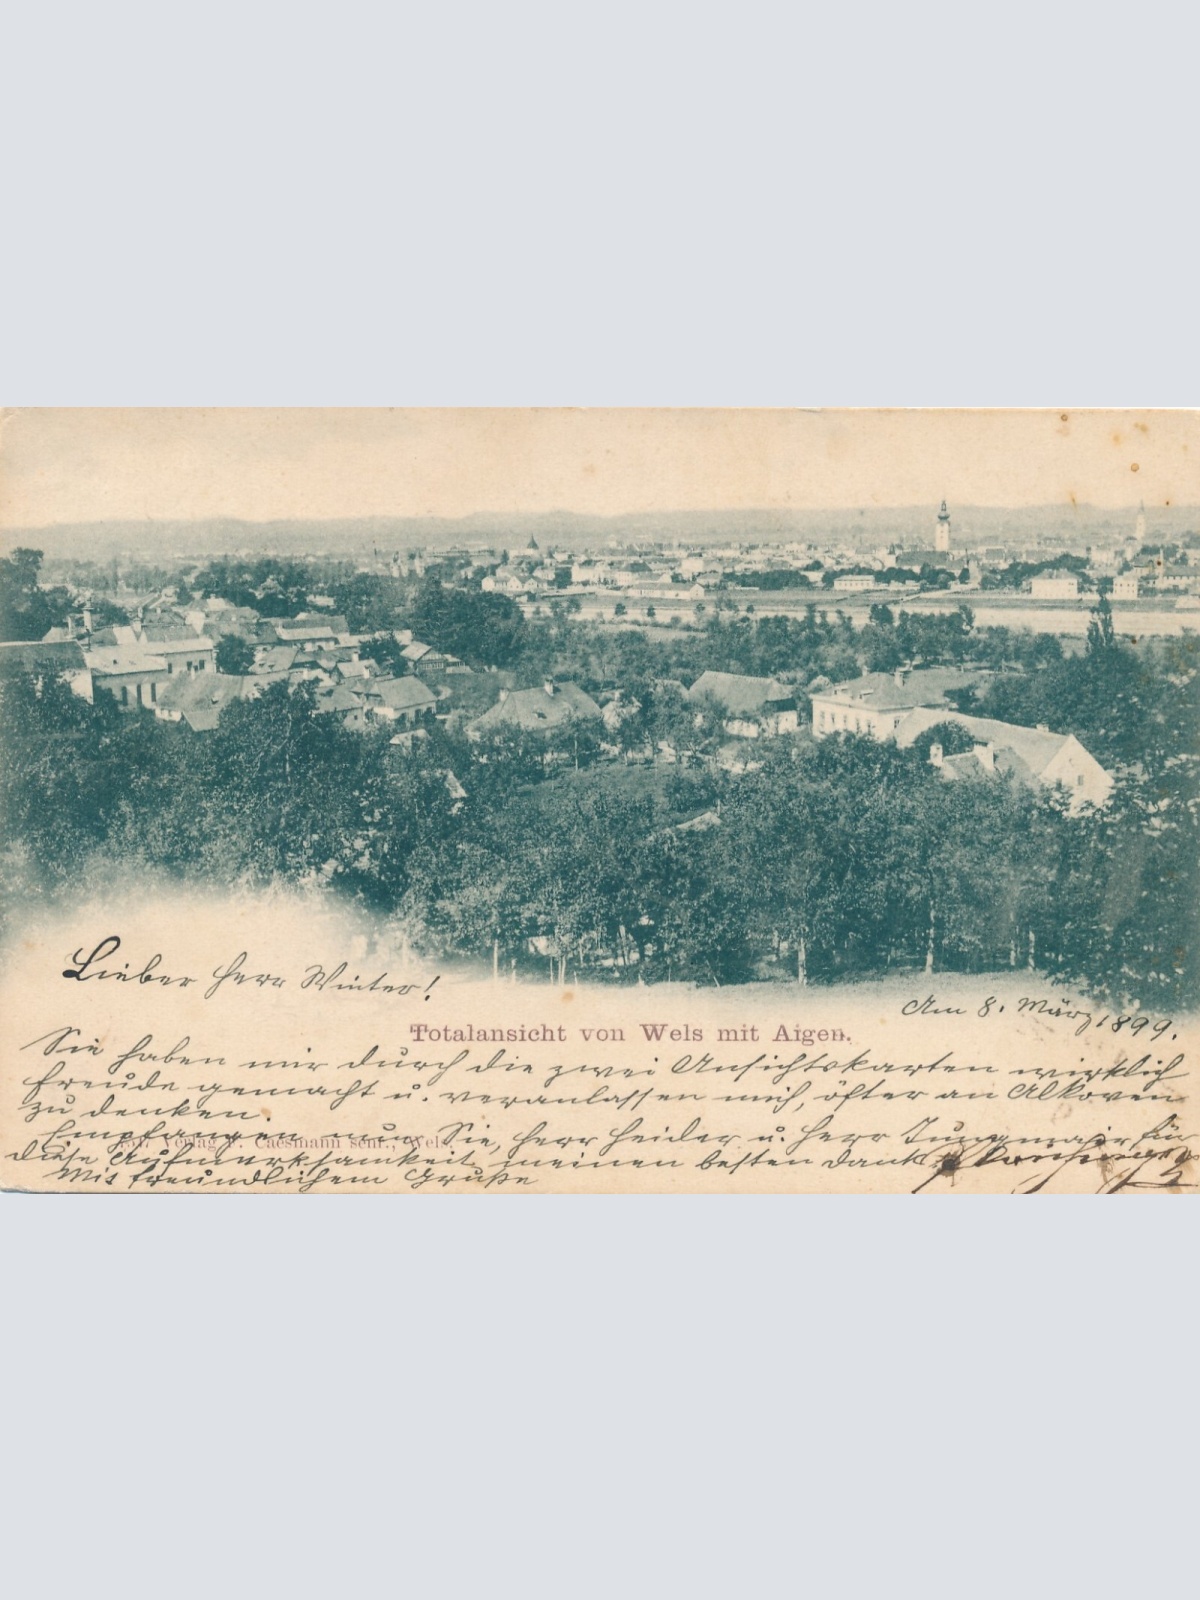 Lieber Herr Winter!
Am 8. März 1899.
Totalansicht von Wels mit Aigen.
Sie haben mir durch die zwei Ansichtskarten wirklich
Freude gemacht u. veranlassen mich, öfter an Alkoven
zu denken.
Empfangen nun Sie, Herr Heider u. Herr Jungmair für
Verlag v. Caesmann sen., Wels.
diese Aufmerksamkeit meinen besten Dank.
Mit freundlichem Gruße